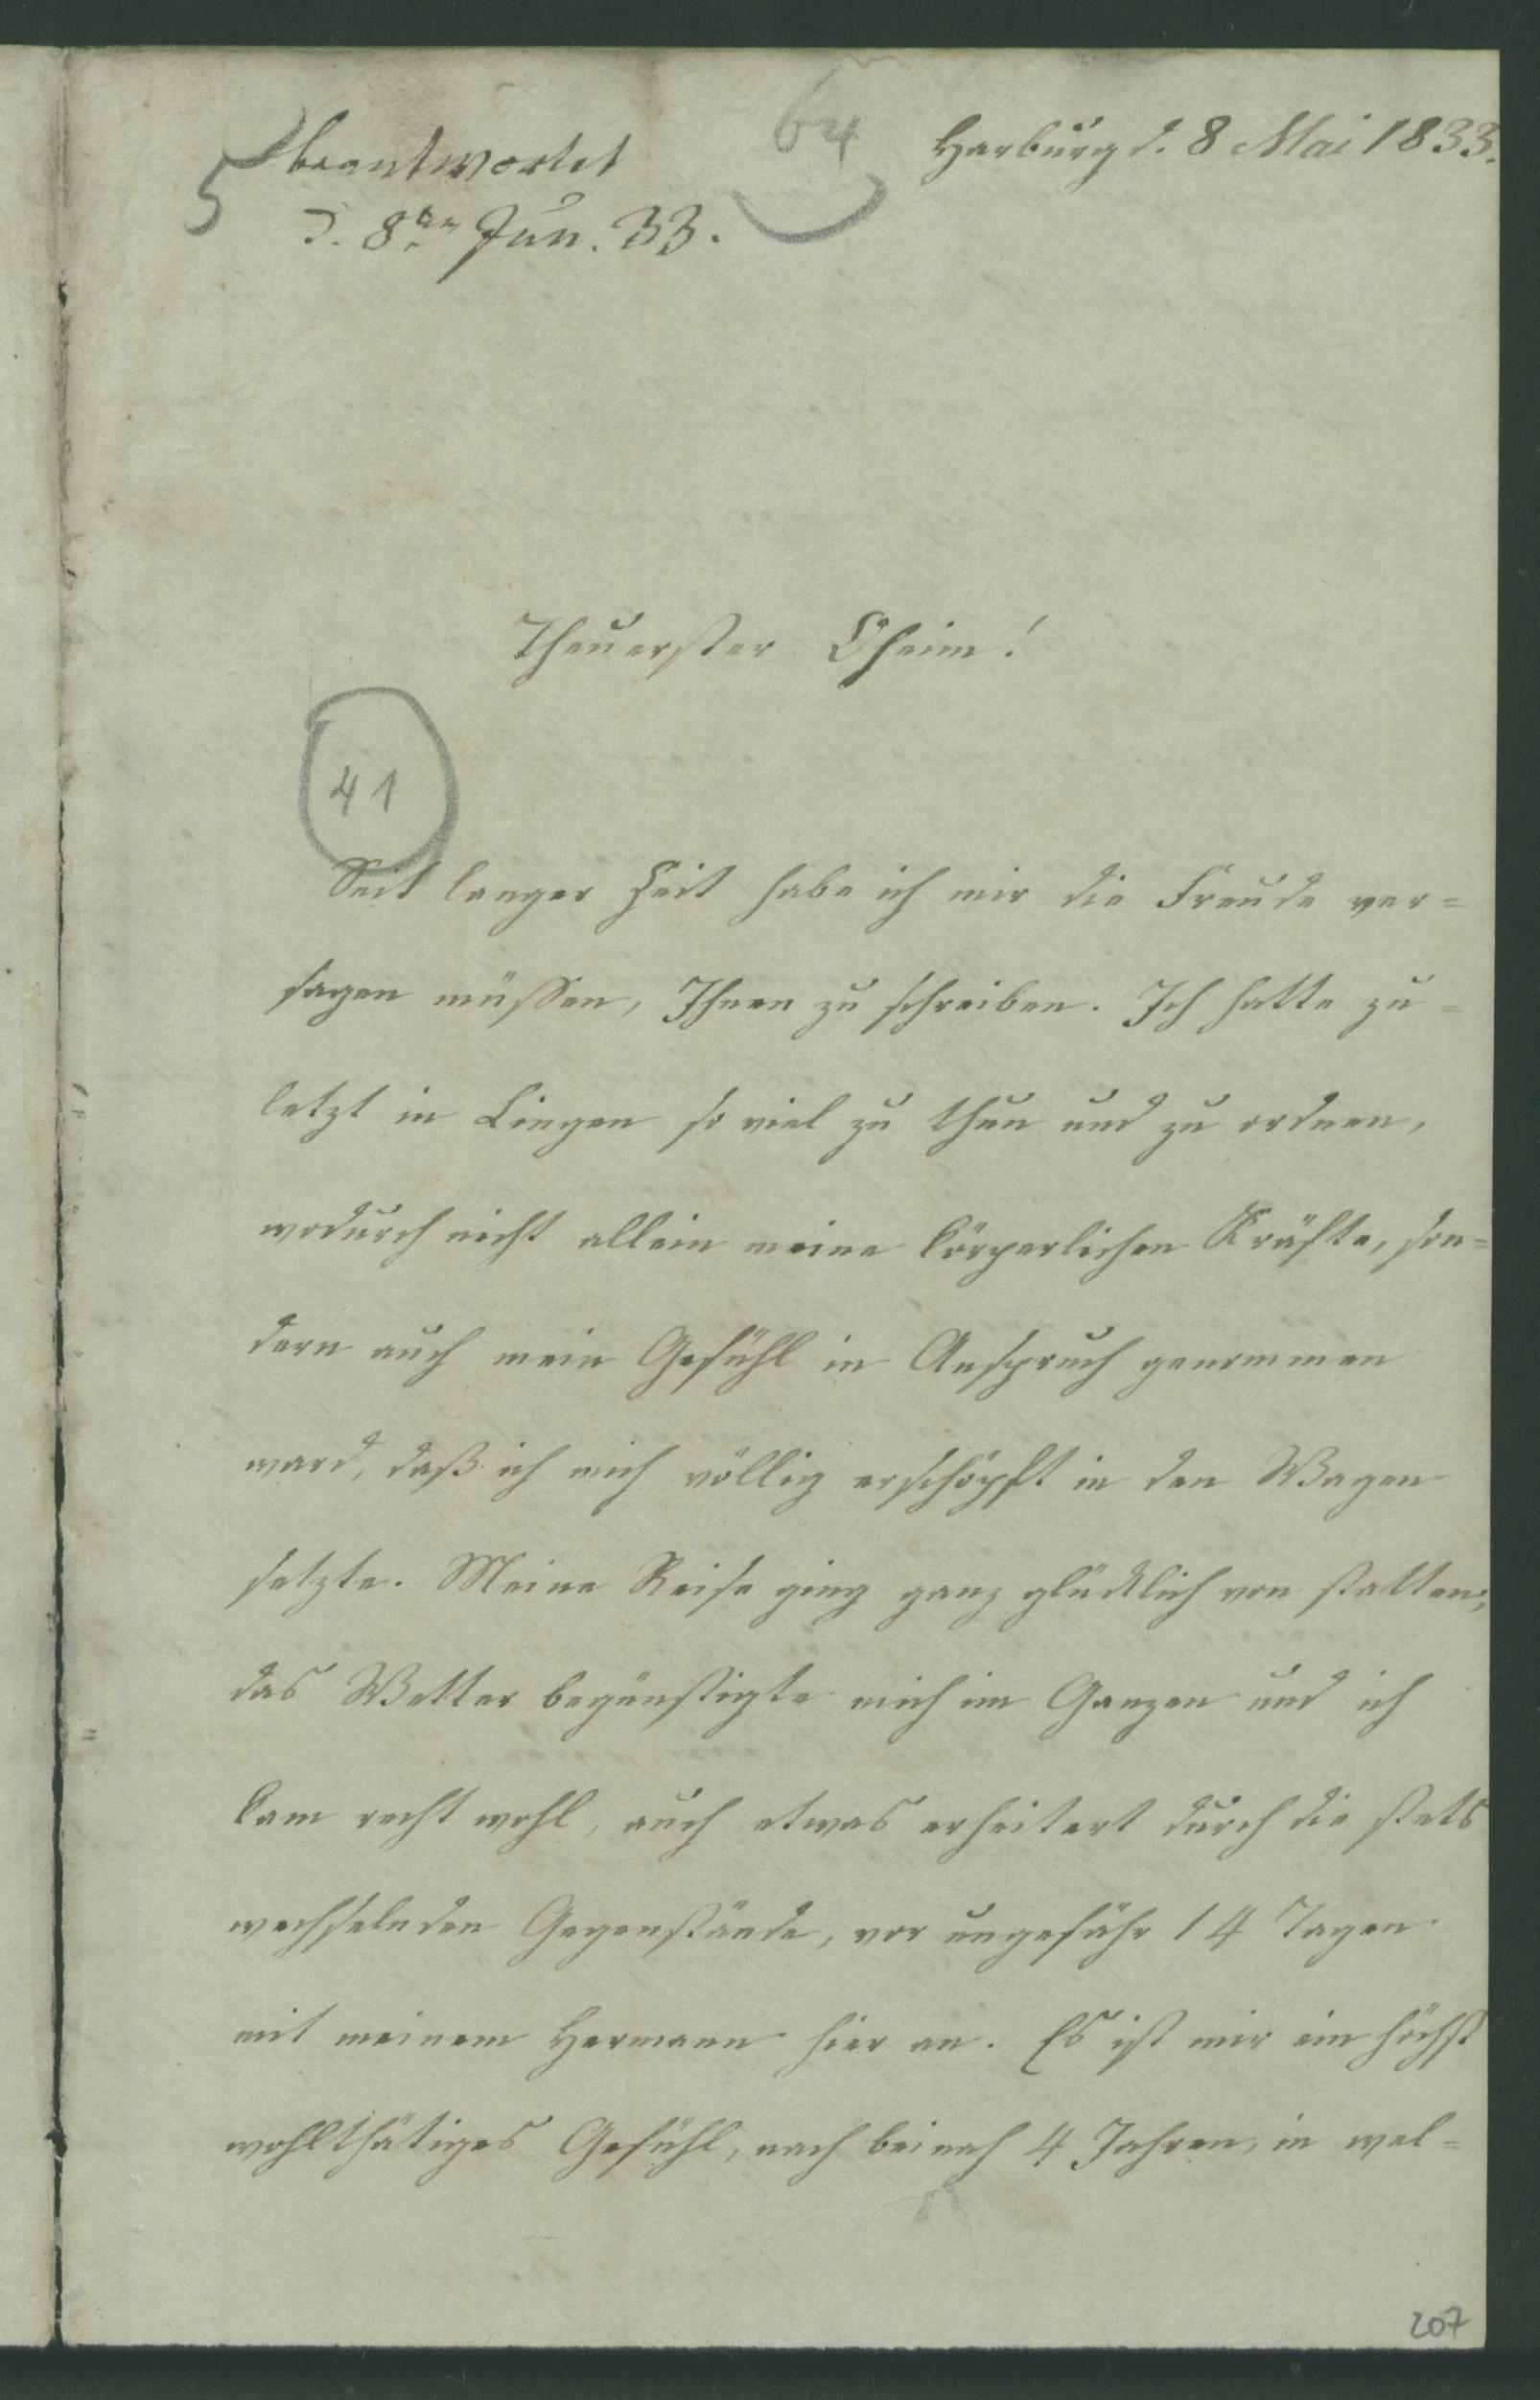 64
Harburg d. 8 Mai 1833.
5 beantwortet
d. 8ten Jun. 33.
Theuerster Oheim!
41
Seit langer Zeit habe ich mir die Freude ver=
sagen müssen, Ihnen zu schreiben. Ich hatte zu=
letzt in Lingen so viel zu thun und zu ordnen,
wodurch nicht allein meine körperlichen Kräfte, son=
dern auch mein Gefühl in Anspruch genommen
ward, daß ich mich völlig erschöpft in den Wagen
setzte. Meine Reise ging ganz glücklich von statten;
das Wetter begünstigte mich im Ganzen und ich
kam recht wohl, auch etwas erheitert durch die stets
wechselnden Gegenstände, vor ungefähr 14 Tagen
mit meinem Hermann hier an. Es ist mir ein höchst
wohlthätiges Gefühl, nach beinah 4 Jahren, in wel=
207